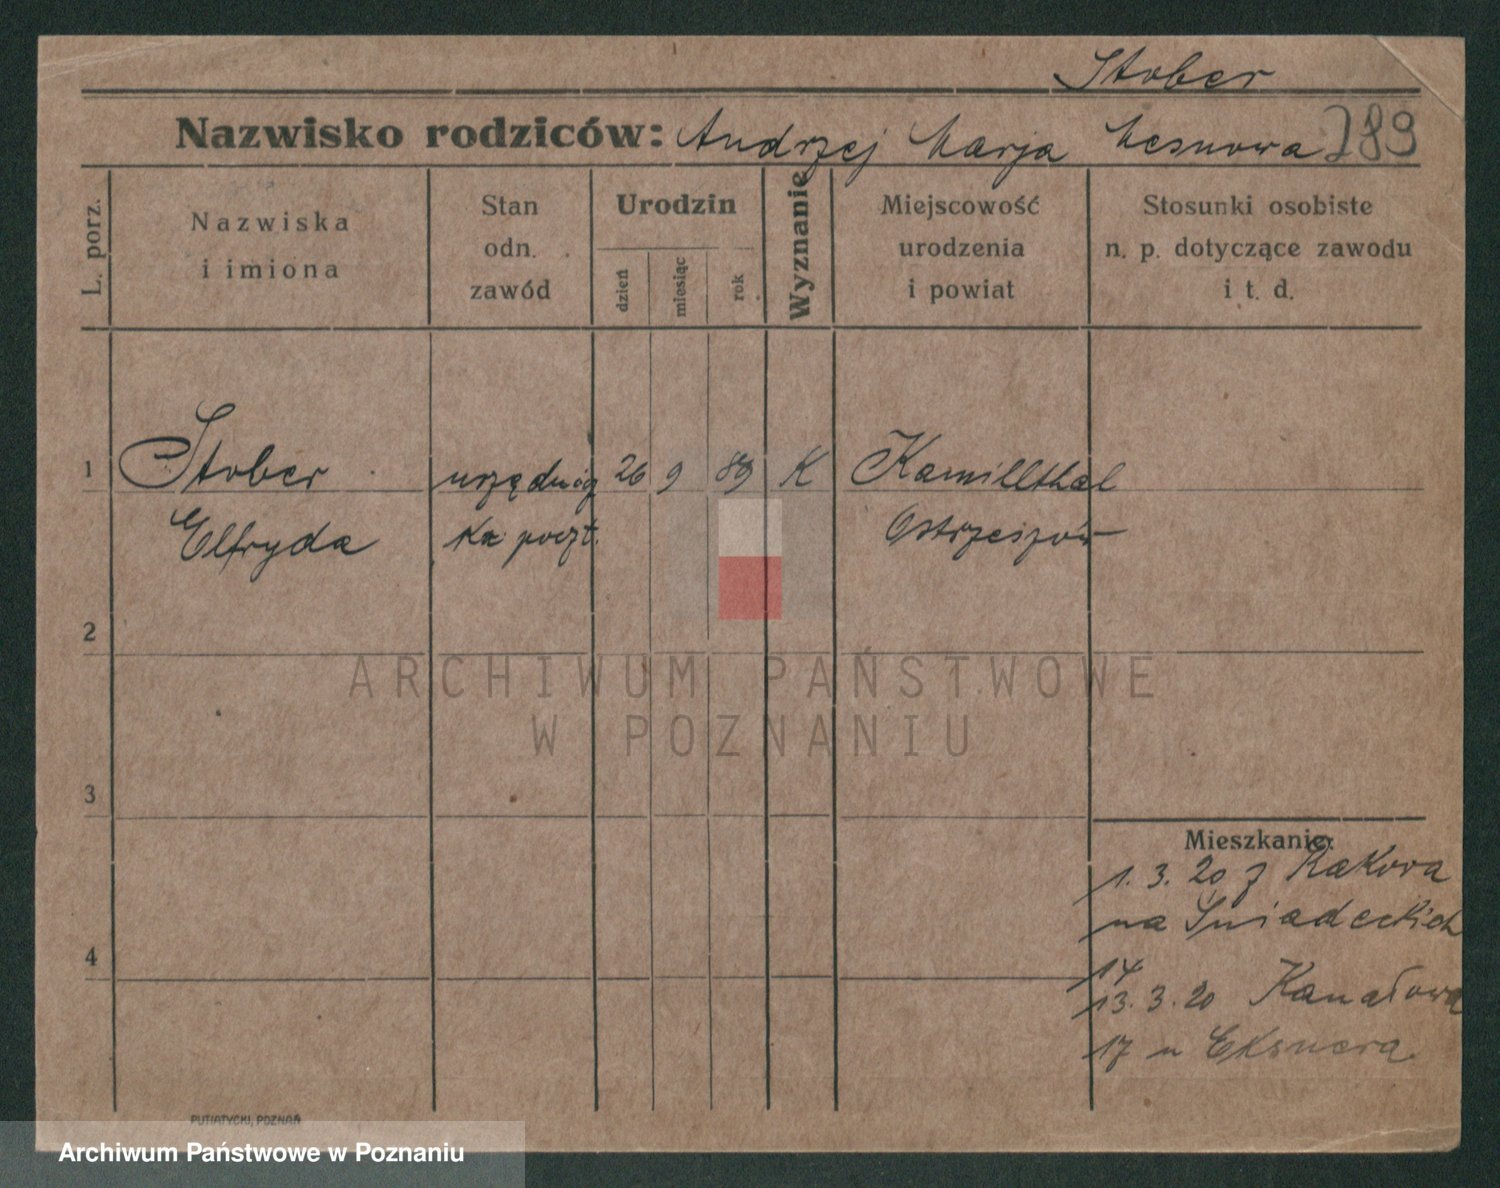 Stober
Nazwisko rodziców: Andrzej Marja 289
L. porz.
Nazwiska
i imiona
Stan
odn.
zawód
Urodzin
dzień
miesiąc
rok
Wyznanie
Miejscowość
urodzenia
i powiat
Stosunki osobiste
n. p. dotyczące zawodu
i t. d.
1 Stober urzędnig 26 9 89 K Kamillthal
Elfryda ka poczt. Ostrzeszów
2
ARCHIWUM PAŃSTWOWE
W POZNANIU
3
Mieszkanie:
1. 3. 20 z Rakova
na Śniadeckich
4
14
13. 3. 20 Kanałowa
17 u Eksnera
PUTIATYCKI, POZNAŃ
Archiwum Państwowe w Poznaniu